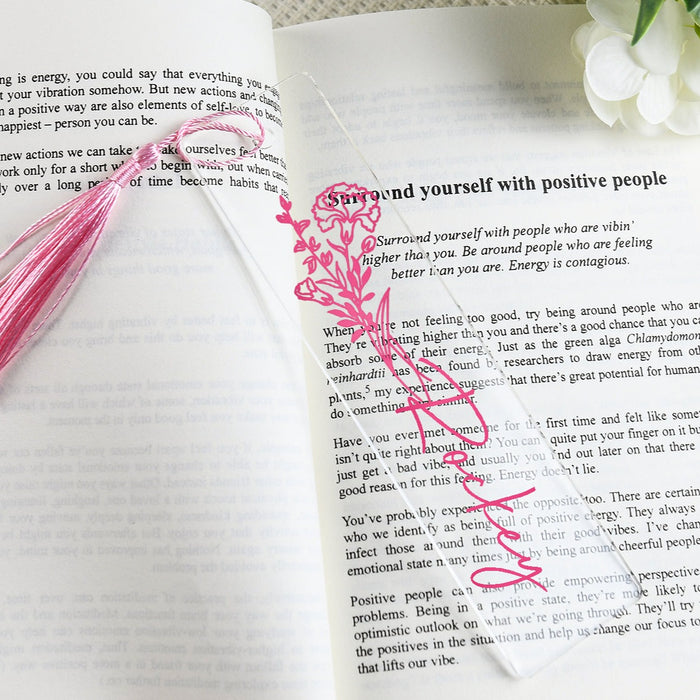 ng is energy, you could say that everything you
t your vibration somehow. But new actions and changing
n a positive way are also elements of self-love, to become
happiest – person you can be.
new actions we can take to make ourselves feel better
work only for a short while to begin with, but when carried
ly over a long period of time become habits that
Surround yourself with positive people
Surround yourself with people who are vibin'
higher than you. Be around people who are feeling
better than you are. Energy is contagious.
When you're not feeling too good, try being around people who are
They're vibrating higher than you and there's a good chance that you ca
absorb some of their energy. Just as the green alga Chlamydomon
reinhardtii has been found by researchers to draw energy from oth
plants,5 my experience suggests that there's great potential for human
do something similar.
Have you ever met someone for the first time and felt like some
isn't quite right about them? You can't quite put your finger on it bu
just get a bad vibe, and usually you find out later on that there
good reason for this feeling. Energy doesn't lie.
You've probably experienced the opposite too. There are certain
who we identify as being full of positive energy. They always
infect those around them with their good vibes. I've chan
emotional state many times just by being around cheerful people
Positive people can also provide empowering perspective
problems. Being in a positive state, they're more likely to
optimistic outlook on what we're going through. They'll try
the positives in the situation and help us change our focus to
that lifts our vibe.